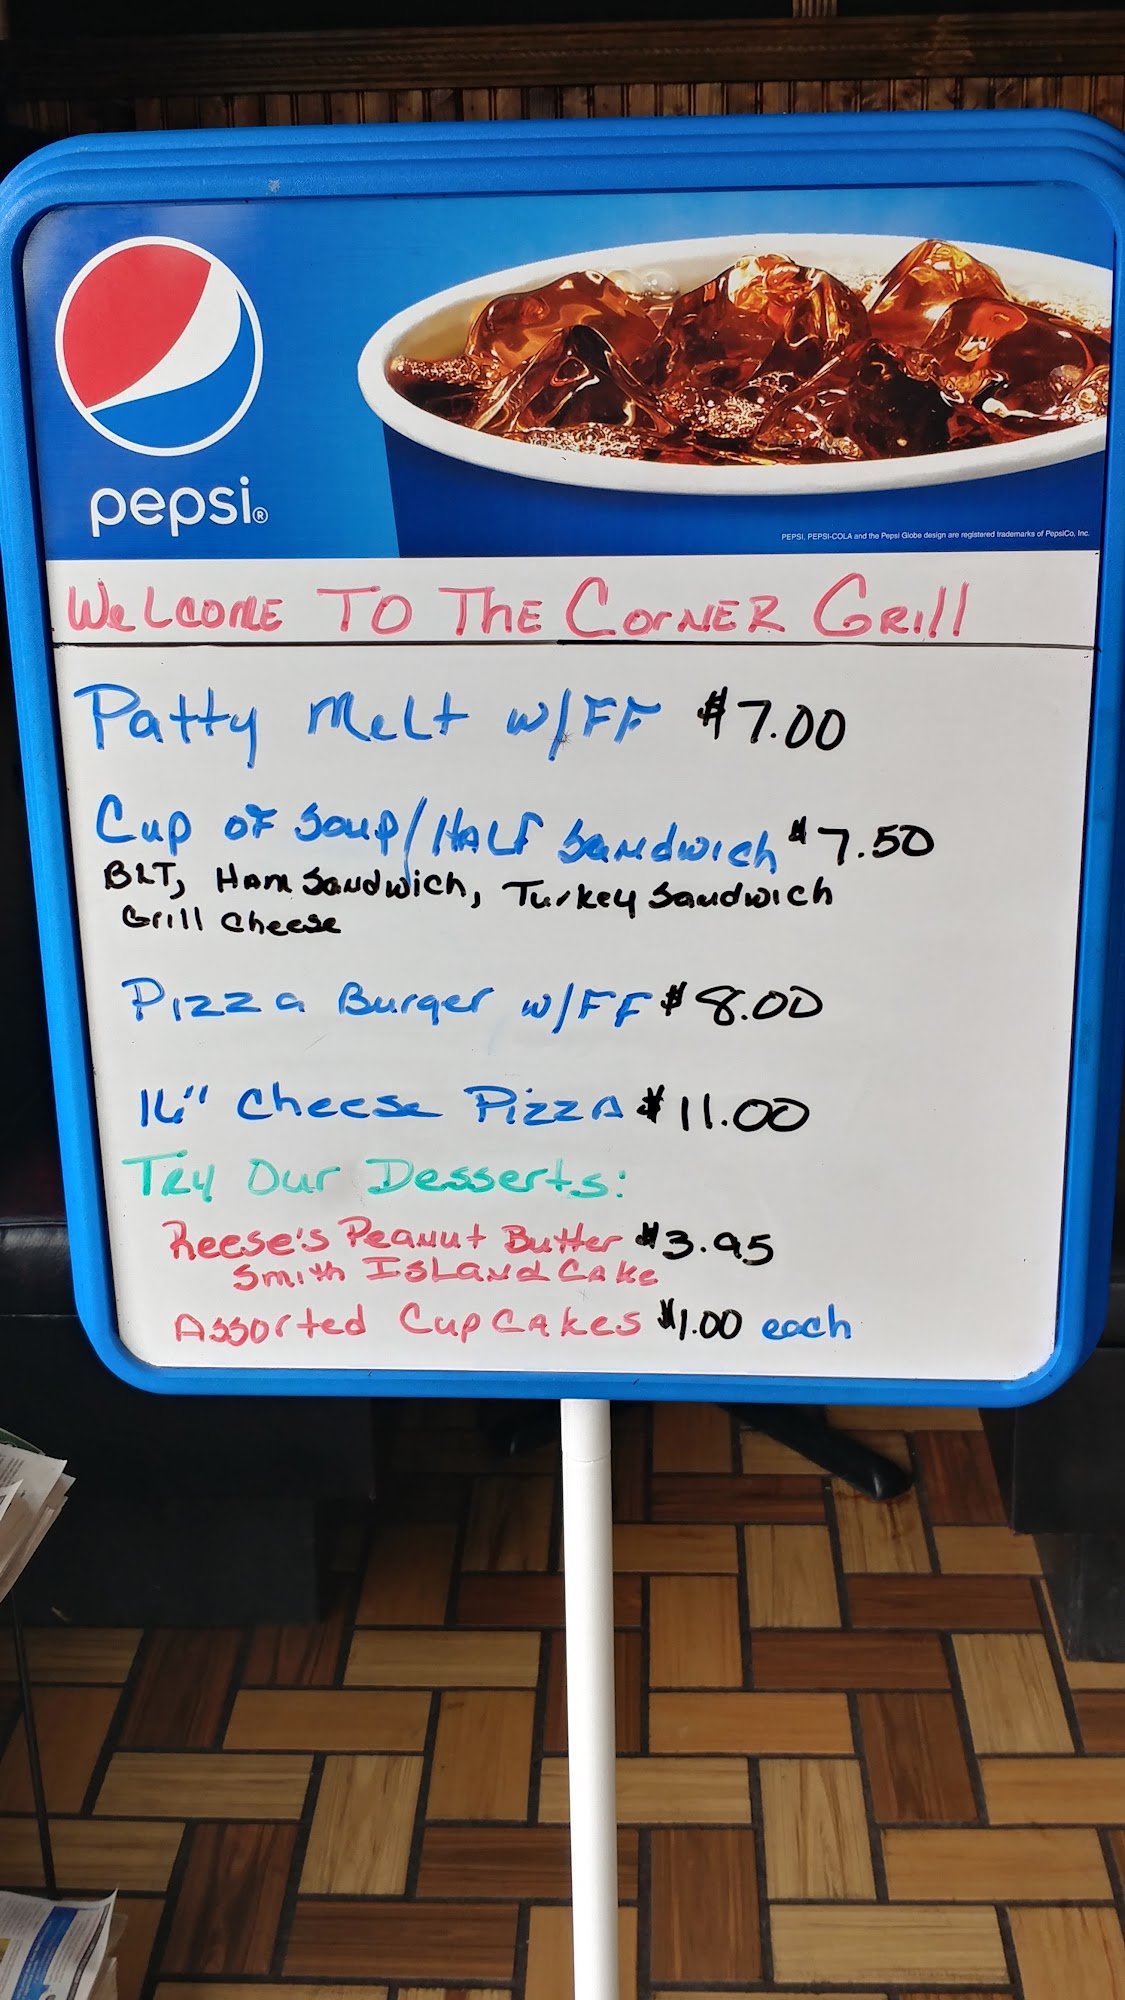 pepsi®
PEPSI, PEPSI-COLA and the Pepsi Globe design are registered trademarks of PepsiCo, Inc.
WeLcome TO THE CorNER GRill
Patty Melt w/FF $7.00
Cup oF Soup/HALF Sandwich $7.50
BLT, Ham Sandwich, Turkey Sandwich
Grill Cheese
Pizza Burger w/FF $8.00
16" Cheese PizzA $11.00
Try Our Desserts:
Reese's Peanut Butter $3.95
Smith Island Cake
Assorted CupCakes $1.00 each